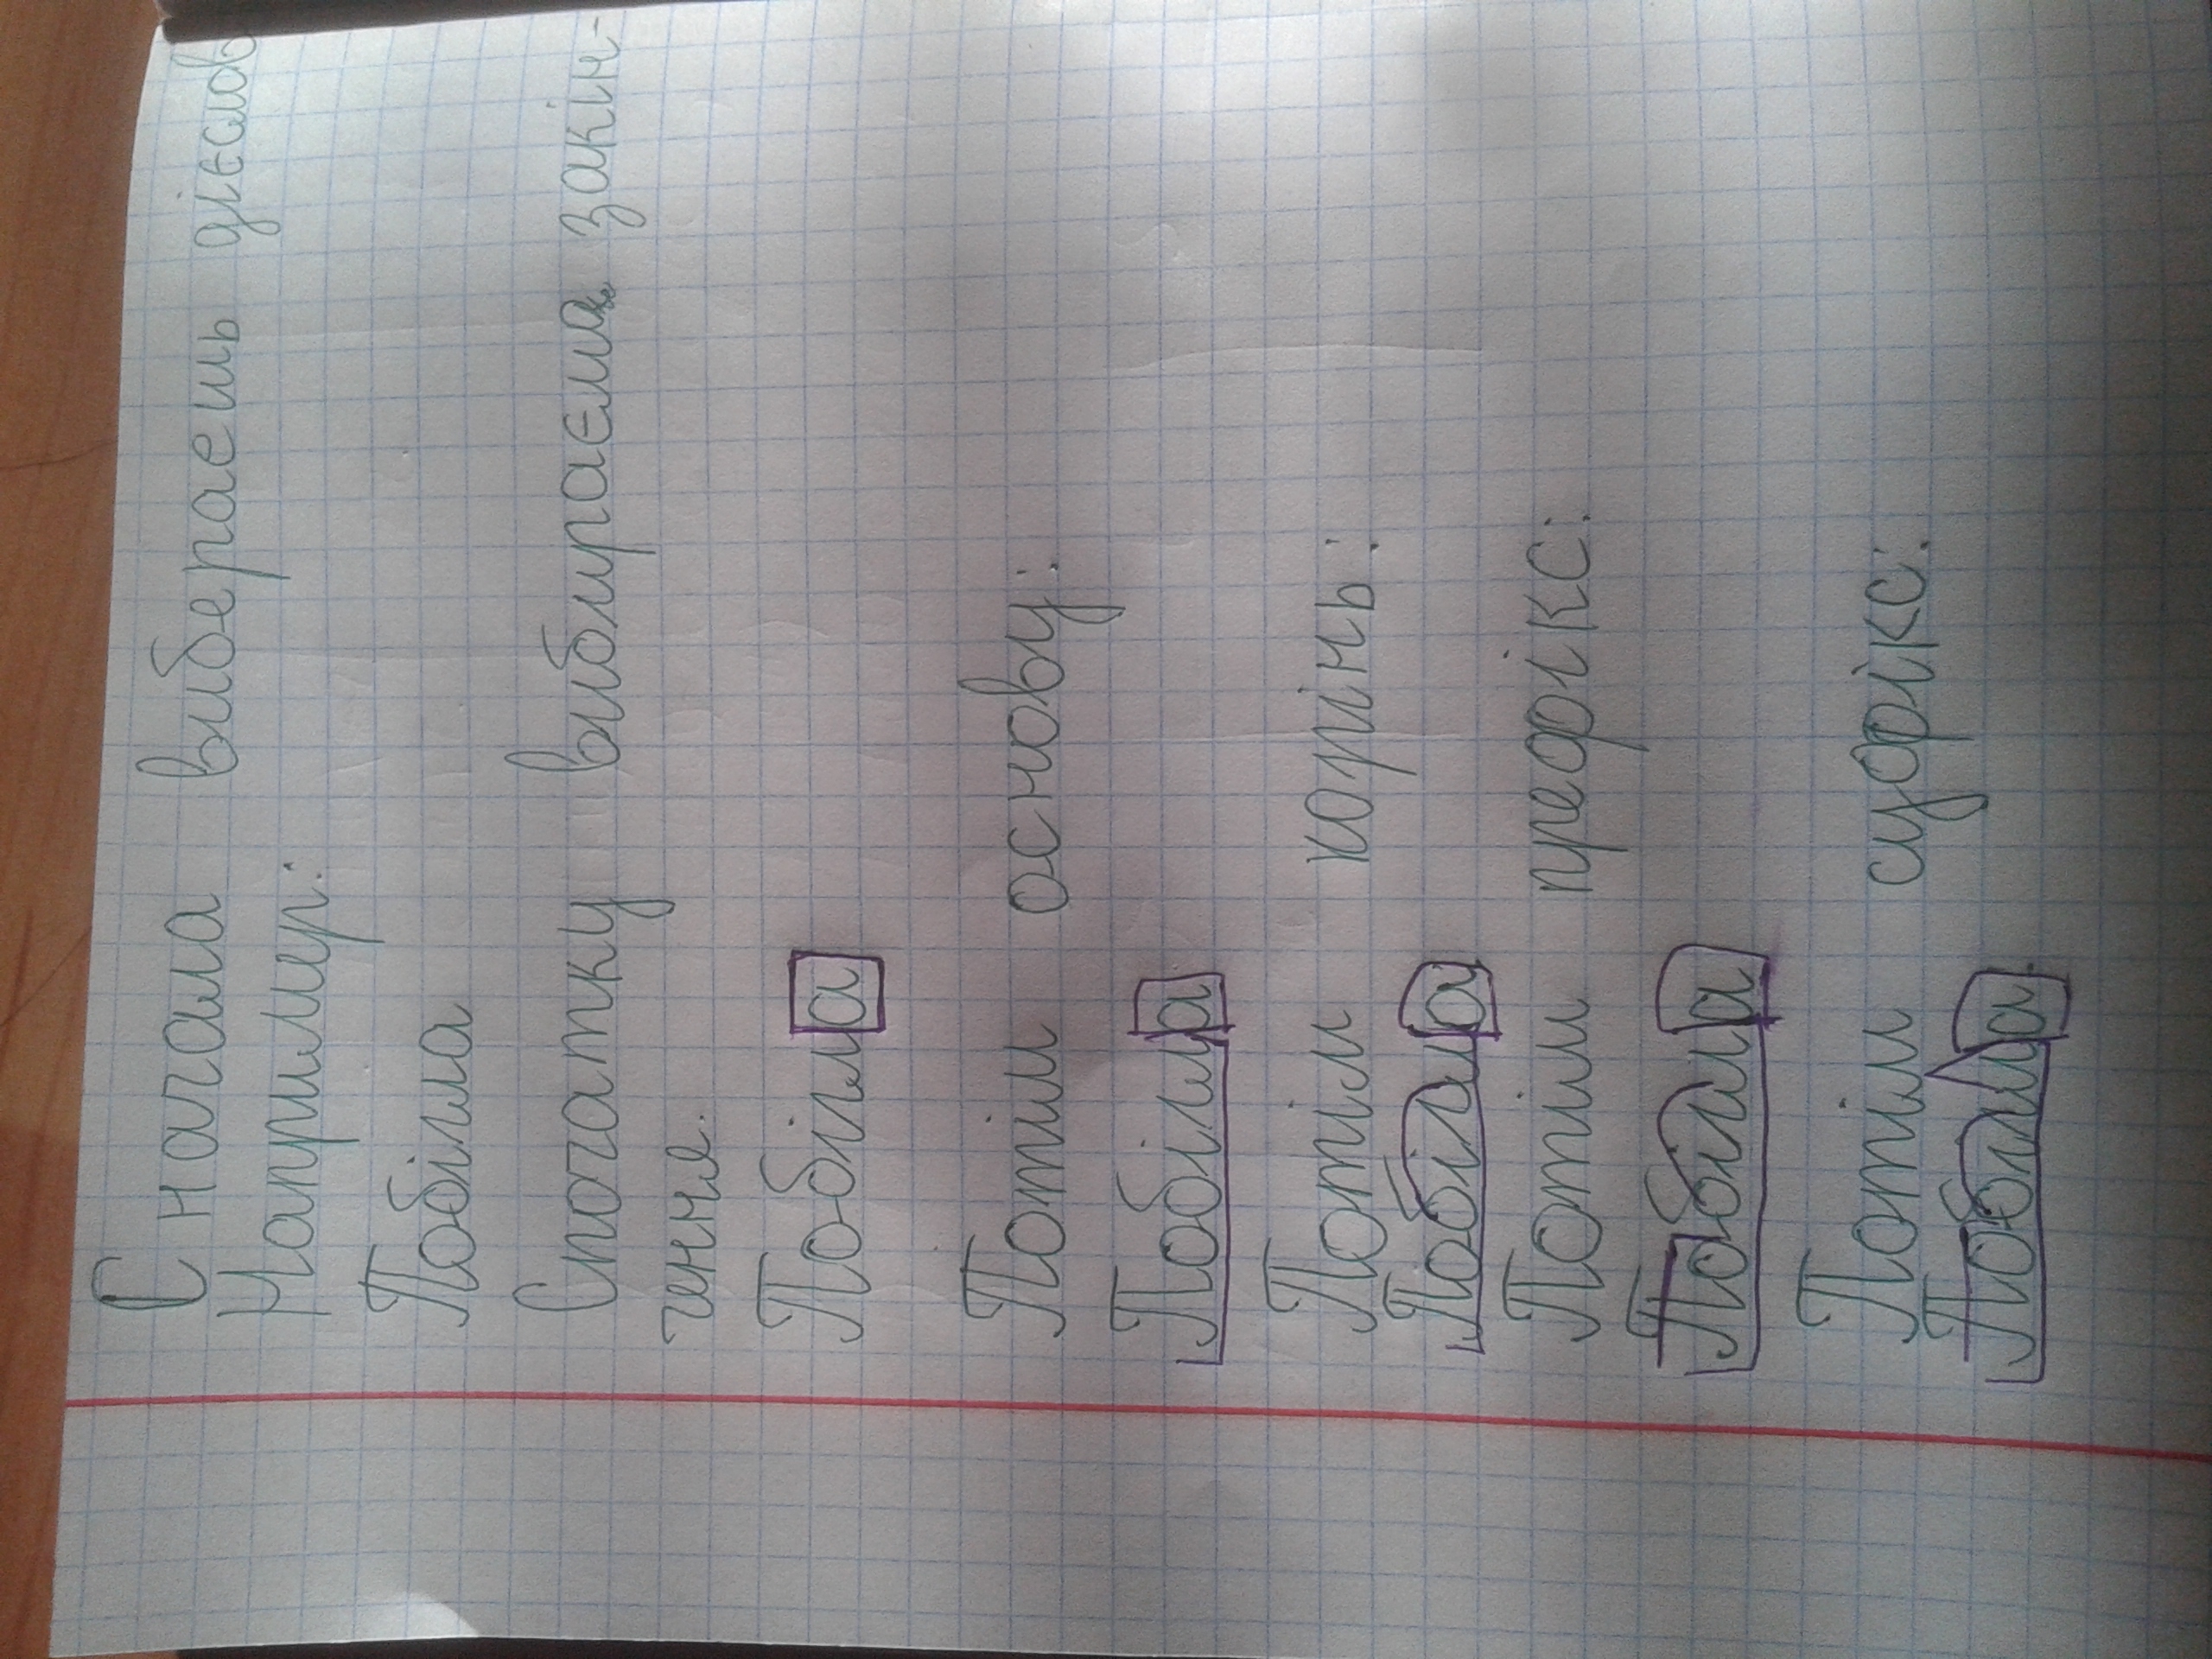 С начала виберпаеш дієслов
Например:
Побігла
Спочатку выбираєма закін-
чення.
Побігла
Потім основу:
Побігла
Потім корінь:
Побігла
Потім префікс:
Побігла
Потім суфікс:
Побігла